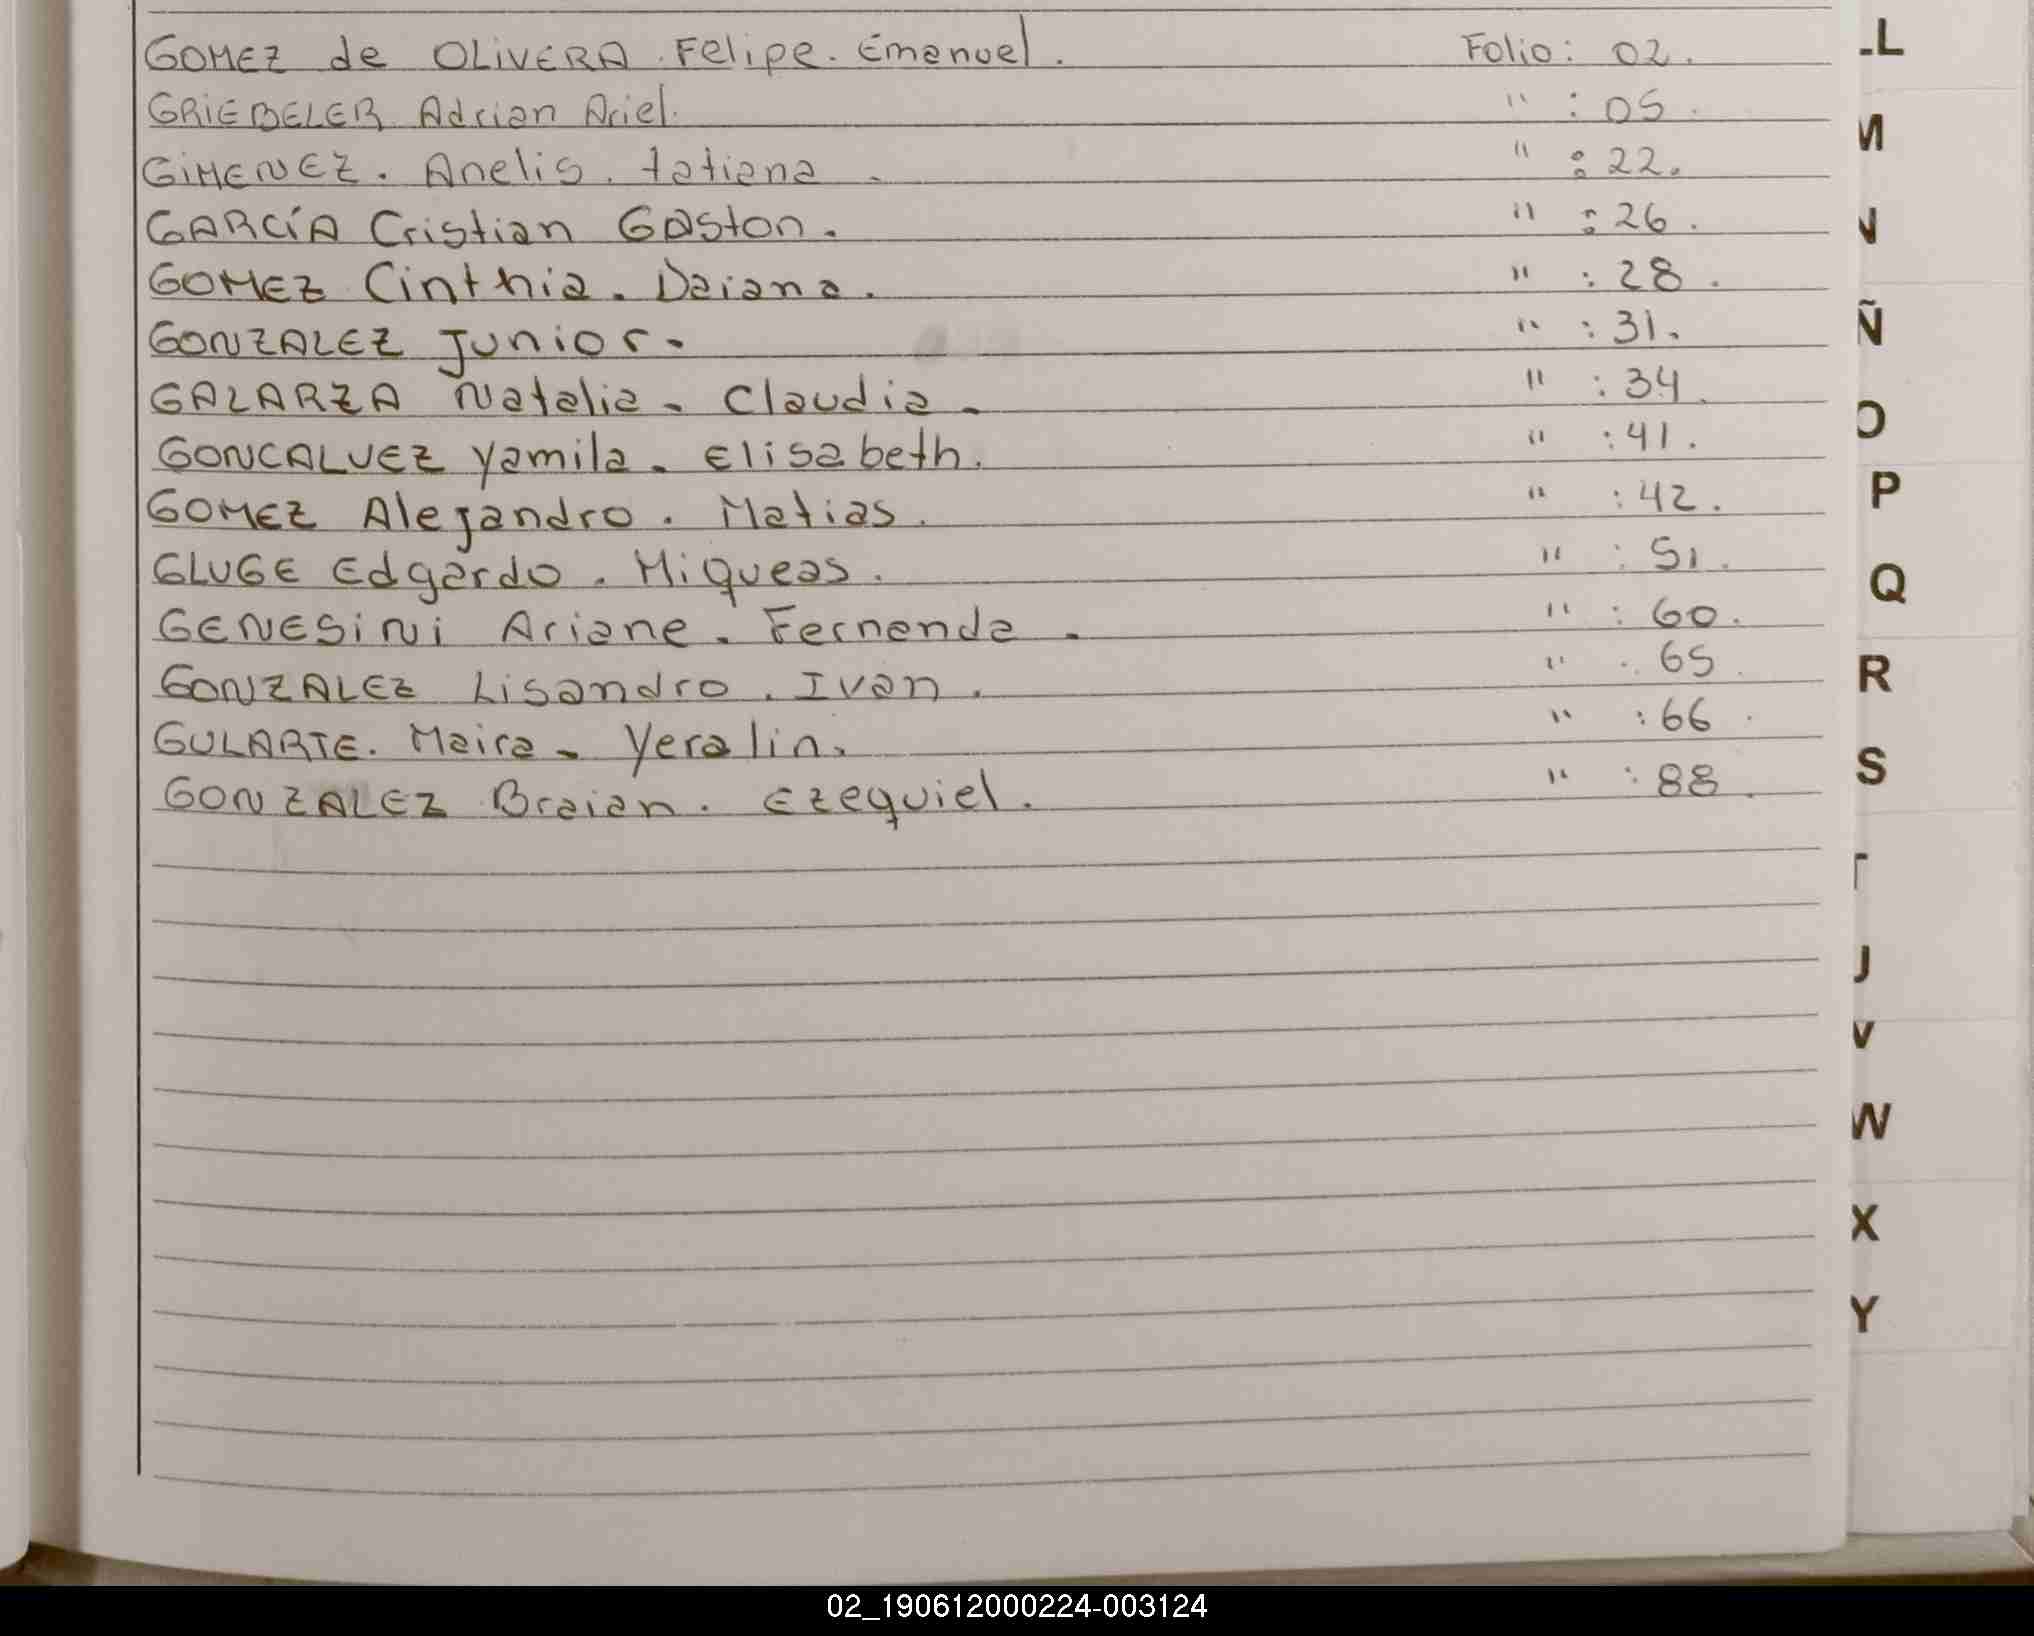 GOMEZ de OLIVERA. Felipe. Emanuel. Folio: 02.
GRIEBELER Adrian Ariel. " : 05.
GIMENEZ. Anelis. tatiana. " : 22.
GARCÍA Cristian Gaston. " : 26.
GOMEZ Cinthia. Daiana. " : 28.
GONZALEZ Junior. " : 31.
GALARZA Natalia. Claudia. " : 34.
GONCALVEZ Yamila. Elisabeth. " : 41.
GOMEZ Alejandro. Matias. " : 42.
GLUGE Edgardo. Miqueas. " : 51.
GENESINI Ariane. Fernanda. " : 60.
GONZALEZ Lisandro. Ivan. " : 65.
GULARTE. Maira. Yeralin. " : 66.
GONZALEZ Braian. Ezequiel. " : 88.
LL
M
N
Ñ
O
P
Q
R
S
T
U
V
W
X
Y
02_190612000224-003124